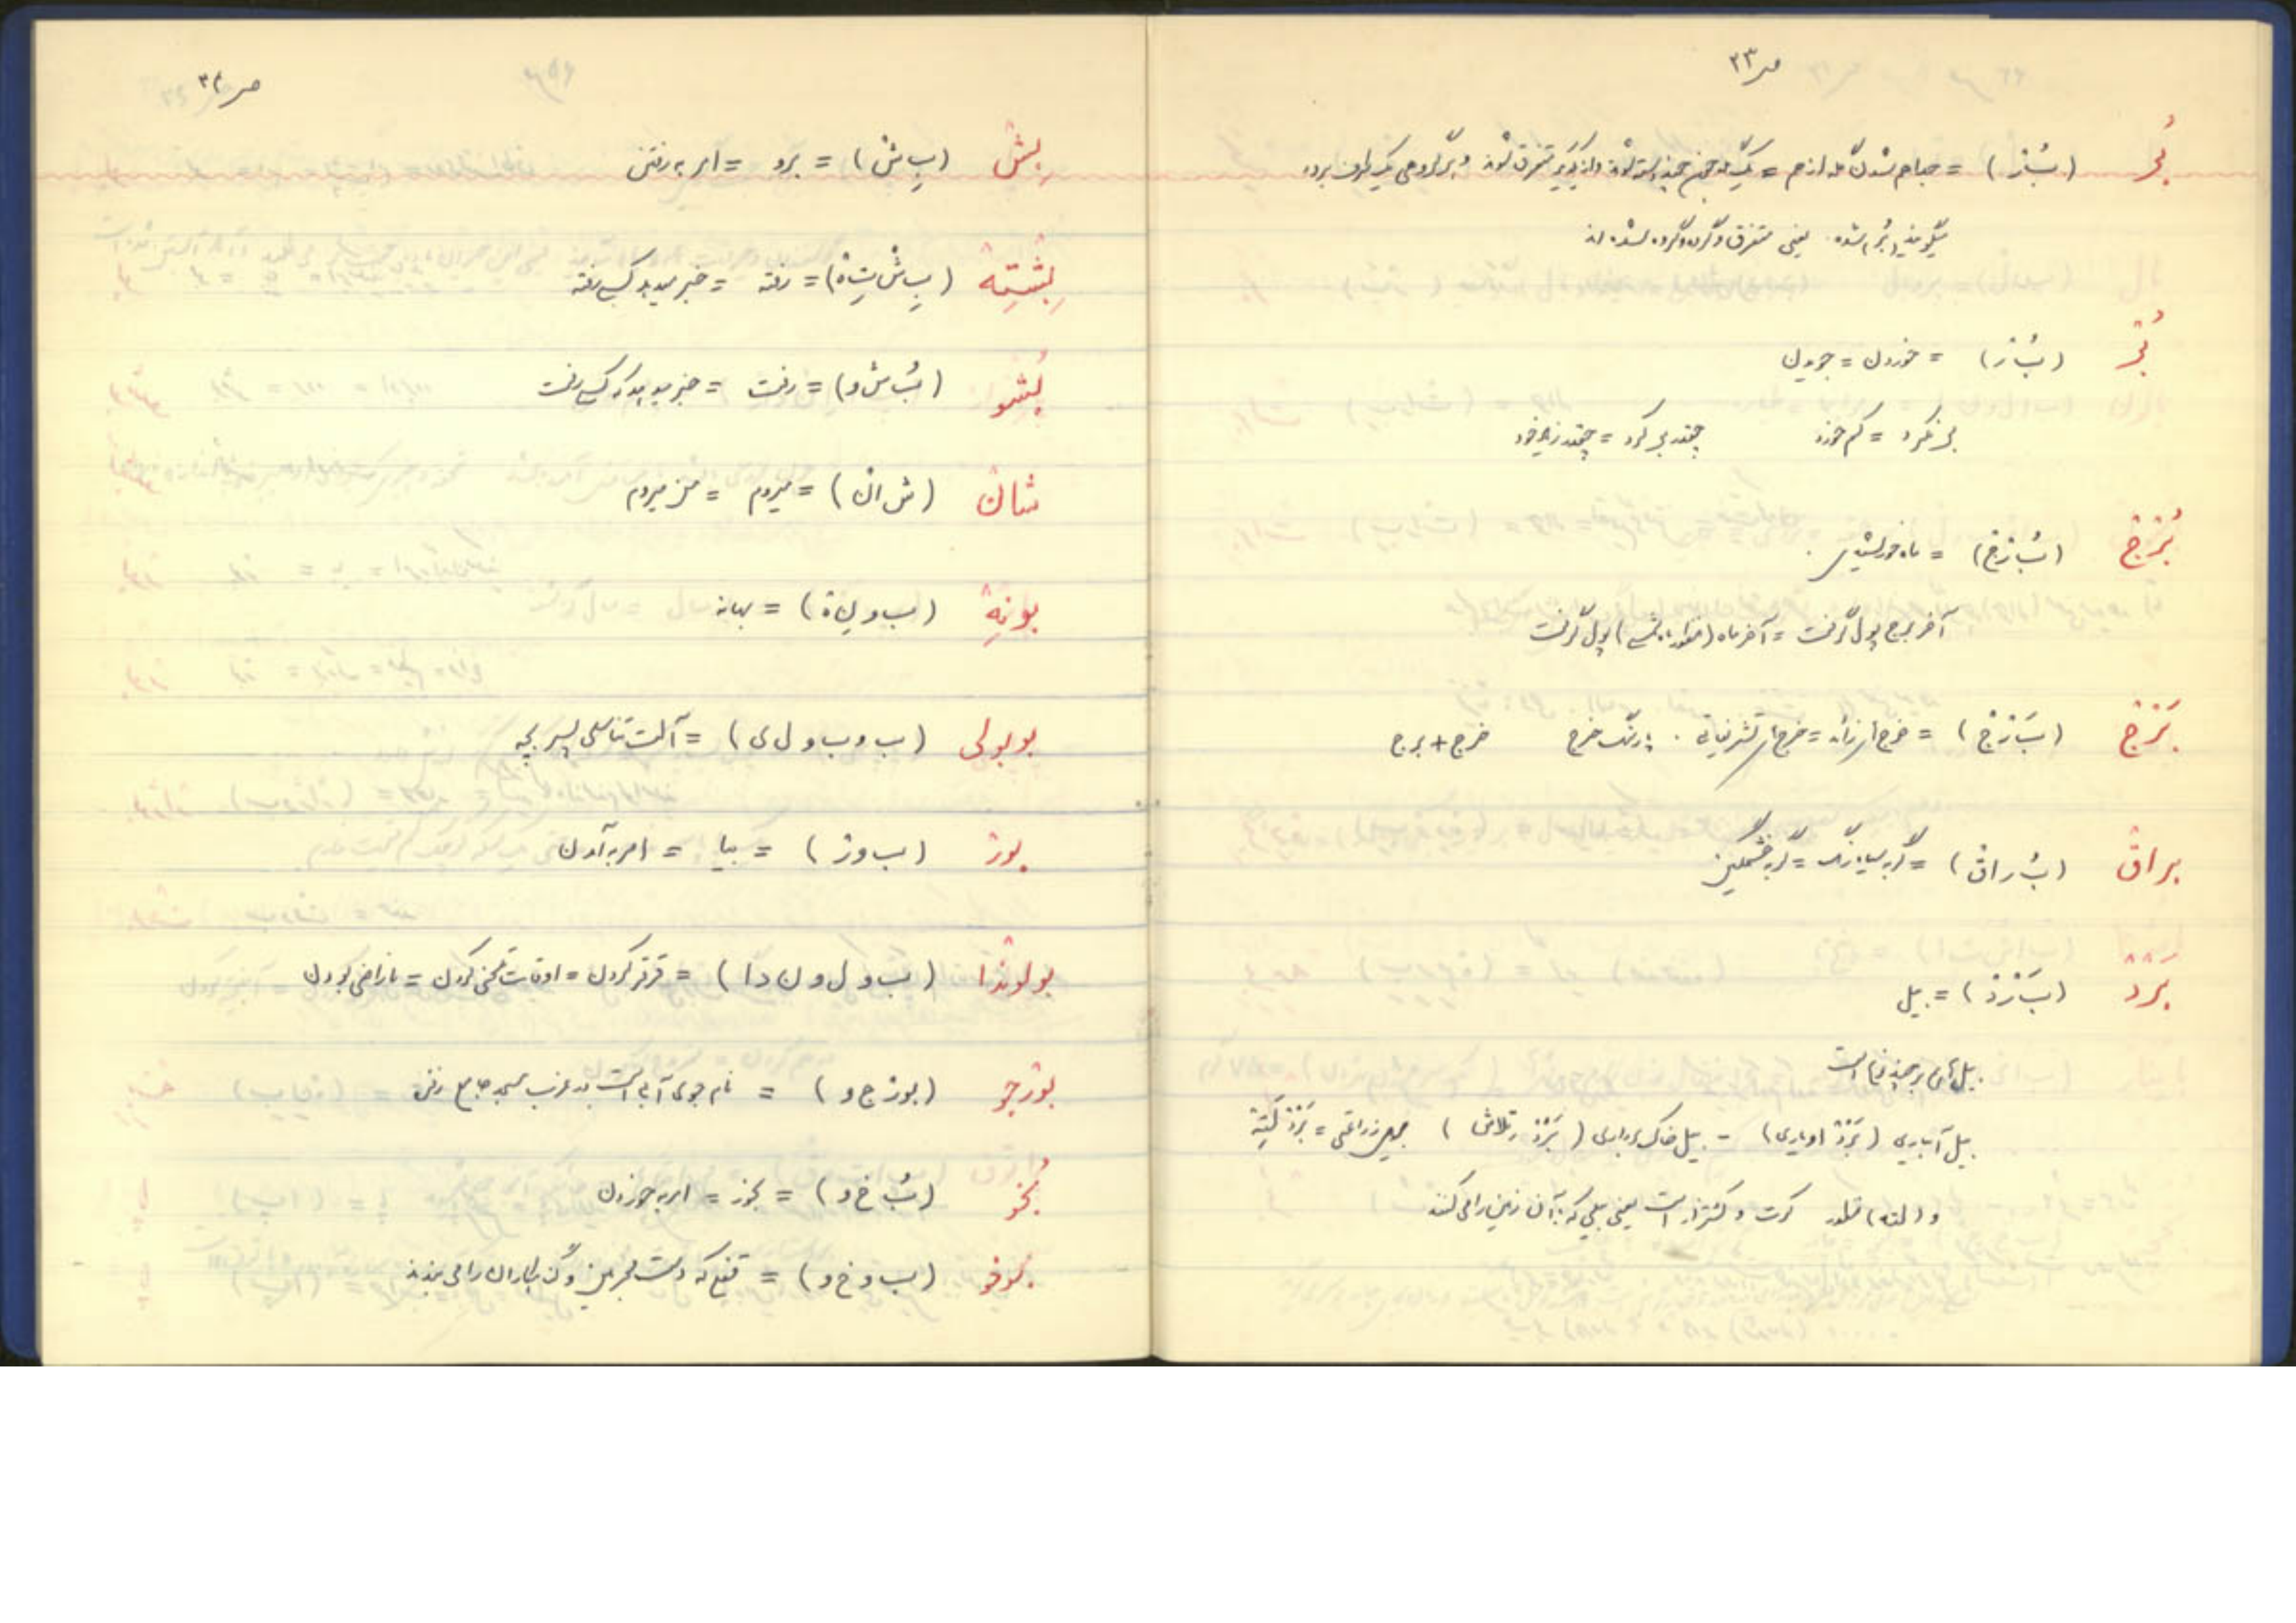 ص ۳۳
بُر (بُ ر) = جدا جدا شدن گله از هم = یک گله چون چند دسته شود و از یکدیگر متفرق شوند و هر گروهی یک طرف برود
میگویند (بُر بُر) شده یعنی متفرق و گروه گروه شده اند
بُر (بُ ر) = خوردن = جویدن
بر نکرد = کم خورد چقدر بر کرد = چقدر زیاد خورد
بُرْج (بُ رْج) = ماه خورشیدی
آخر برج پول گرفت = آخر ماه (منظور ماه شمسی) پول گرفت
بَرْج (بَ رْج) = خرج اضافه = خرج تشریفاتی . خرج + برج
براق (بُ راق) = گربه سیاه رنگ = گربه خشمگین
بَرْدْ (بَ رْدْ) = بیل
بیل های بر چند نوع است
بیل آبیاری (بَرْدْ اویاری) - بیل خاک برداری (بَرْدْ تلاش) بیل زراعتی = بَرْدْ کَتِهْ
و (کته) منظور کرت و کشتزار است یعنی بیلی که با آن زمین را می کنند
ص ۳۴
بِشْ (بِ ش) = برو = امر به رفتن
بِشْتِهْ (بِ شْ تِ ه) = رفته = خبر میدهد کسی رفته
بُشو (بُ ش و) = رفت = خبر میدهد که کسی رفت
شان (ش ان) = میروم = من میروم
بونِهْ (ب و نِ ه) = بهانه
بوبولی (ب و ب و ل ی) = آلت تناسلی پسر بچه
بورْ (ب و ر) = بیا = امر به آمدن
بولوندا (ب و ل و ن د ا) = قرقر کردن = اوقات تلخی کردن = ناراضی بودن
بورْجو (بورْ ج و) = نام جوی آبی است در غرب مسجد جامع
بُخو (بُ خ و) = بخور = امر به خوردن
بوخو (ب و خ و) = که دست مجرمین و گناهکاران را می بندند